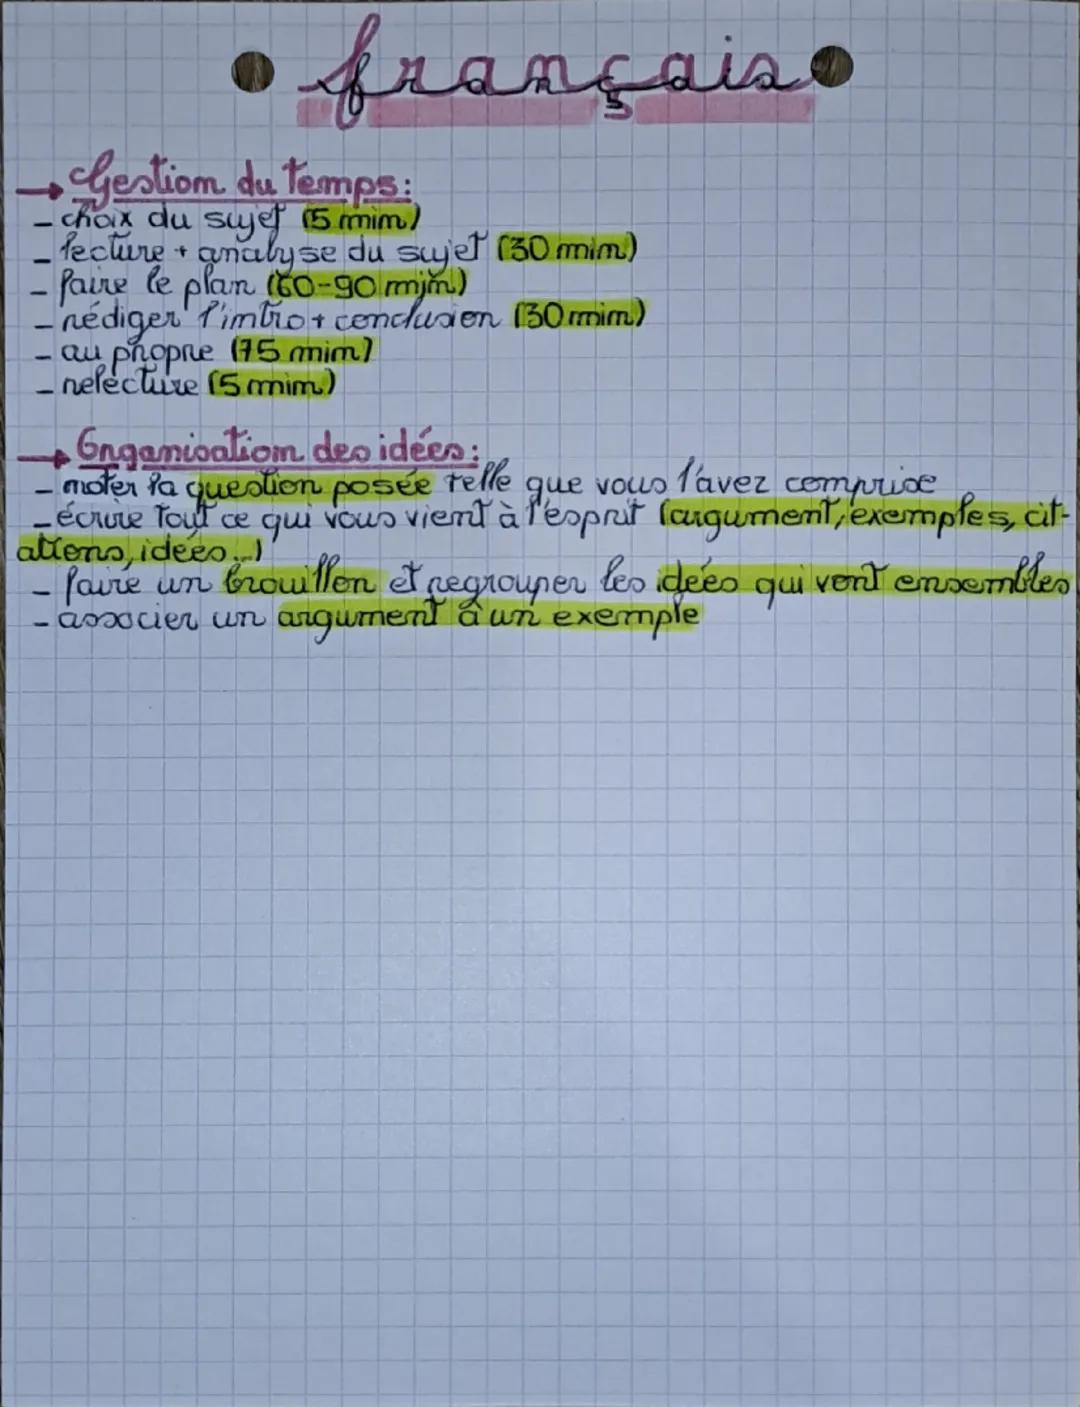 français
→ Gestion du temps:
- choix du sujet (5 min)
- lecture + analyse du sujet (30 min)
- faire le plan (60-90 min)
- rédiger l'intro + conclusion (30 min)
- au propre (75 min)
- relecture (5 min)
→ Organisation des idées:
- noter la question posée telle que vous l'avez comprise
- écrire tout ce qui vous vient à l'esprit (argument, exemples, cit-
ations, idées...)
- faire un brouillon et regrouper les idées qui vont ensembles
- associer un argument à un exemple